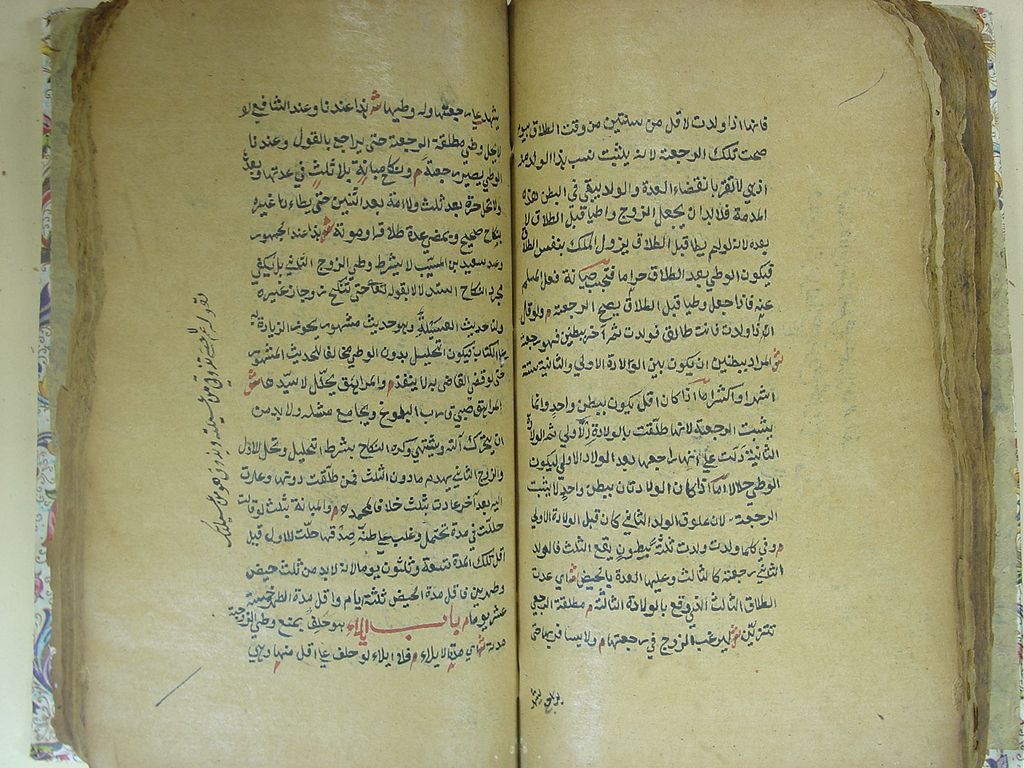 فانها اذا ولدت لاقل من سنتين من وقت الطلاق
صحت تلك الرجعة لانه يثبت نسب هذا الولد
اذ هي لا تقر بانقضاء العدة والولد يبقى في البطن هذه
المدة فلا بد ان يجعل الزوج واطيا قبل الطلاق لا
بعده لانه لو لم يطا قبل الطلاق يزول الملك بنفس الطلاق
فيكون الوطي بعد الطلاق حراما فتجب صيانة فعل المسلم
عنه فاذا جعل وطيا قبل الطلاق يصح الرجعة م ولو قال
ان ولدت فانت طالق فولدت ثم آخر ببطنين فهو رجعة
ش المراد ببطنين ان يكون بين الولادة الاولي والثانية ستة
اشهر او اكثر اما اذا كان اقل يكون ببطن واحد وانما
يثبت الرجعة لانها طلقت بالولادة الاولي ثم الولادة
الثانية دلت على انه راجعها بعد الولاد الاولي ليكون
الوطي حلالا اما اذا كان الولادتان ببطن واحد لا يثبت
الرجعة لان علوق الولد الثاني كان قبل الولادة الاولي
م وفي كلما ولدت فولدت ثلثة ببطون يقع الثلث فالولد
الثاني رجعة كالثالث وعليها العدة بالحيض ش اي عدت
الطلاق الثالث الذي وقع بالولادة الثالثة م مطلقة الرجعي
تتزين ش ليرغب الزوج في رجعتها م ولا يسافر بها حتى
يشهد على رجعتها وله وطيها ش هذا عندنا وعند الشافعي لا
لا يحل وطي مطلقة الرجعة حتى يراجع بالقول وعندنا
الوطي يصير رجعة م ونكاح مبانة بلا ثلث في عدتها وبعدها
ولا تحل حرة بعد ثلث ولا امة بعد اثنين حتى يطاء ها غيره
بنكاح صحيح ويمضي عدة طلاقه او موته ش هذا عند الجمهور
وعند سعيد بن المسيب لا يشترط وطي الزوج الثاني بل يكفي
مجرد النكاح استدلالا بقوله تعالى حتى تنكح زوجا غيره
ولنا حديث العسيلة وهو حديث مشهور يجوز الزيادة به
على الكتاب فيكون التحليل بدون الوطي مخالفا للحديث المشهور
حتى لو قضى القاضي به لا ينفذ م والمراهق يحلل لا سيد ها ش
المراهق صبي قارب البلوغ ويجامع مثله ولا بد من
ان يتحرك آلته ويشتهي وكره النكاح بشرط التحليل وتحل للاول
والزوج الثاني يهدم مادون الثلث فمن طلقت دونها وعادت
اليه بعد آخر عادت بثلث خلافا لمحمد م والمبانة بثلث لو قالت
حللت في مدة تحتمل وغلب على ظنه صدقها حلت للاول قيل
اقل تلك المدة تسعة وثلثون يوما لانه لا بد من ثلث حيض
وطهرين فاقل مدة الحيض ثلثة ايام واقل مدة الطهر خمسة
عشر يوما م باب الايلاء هو حلف يمنع وطي الزوجة
مدته ش اي مدة الايلاء م فلا ايلاء لو حلف على اقل منها وهي